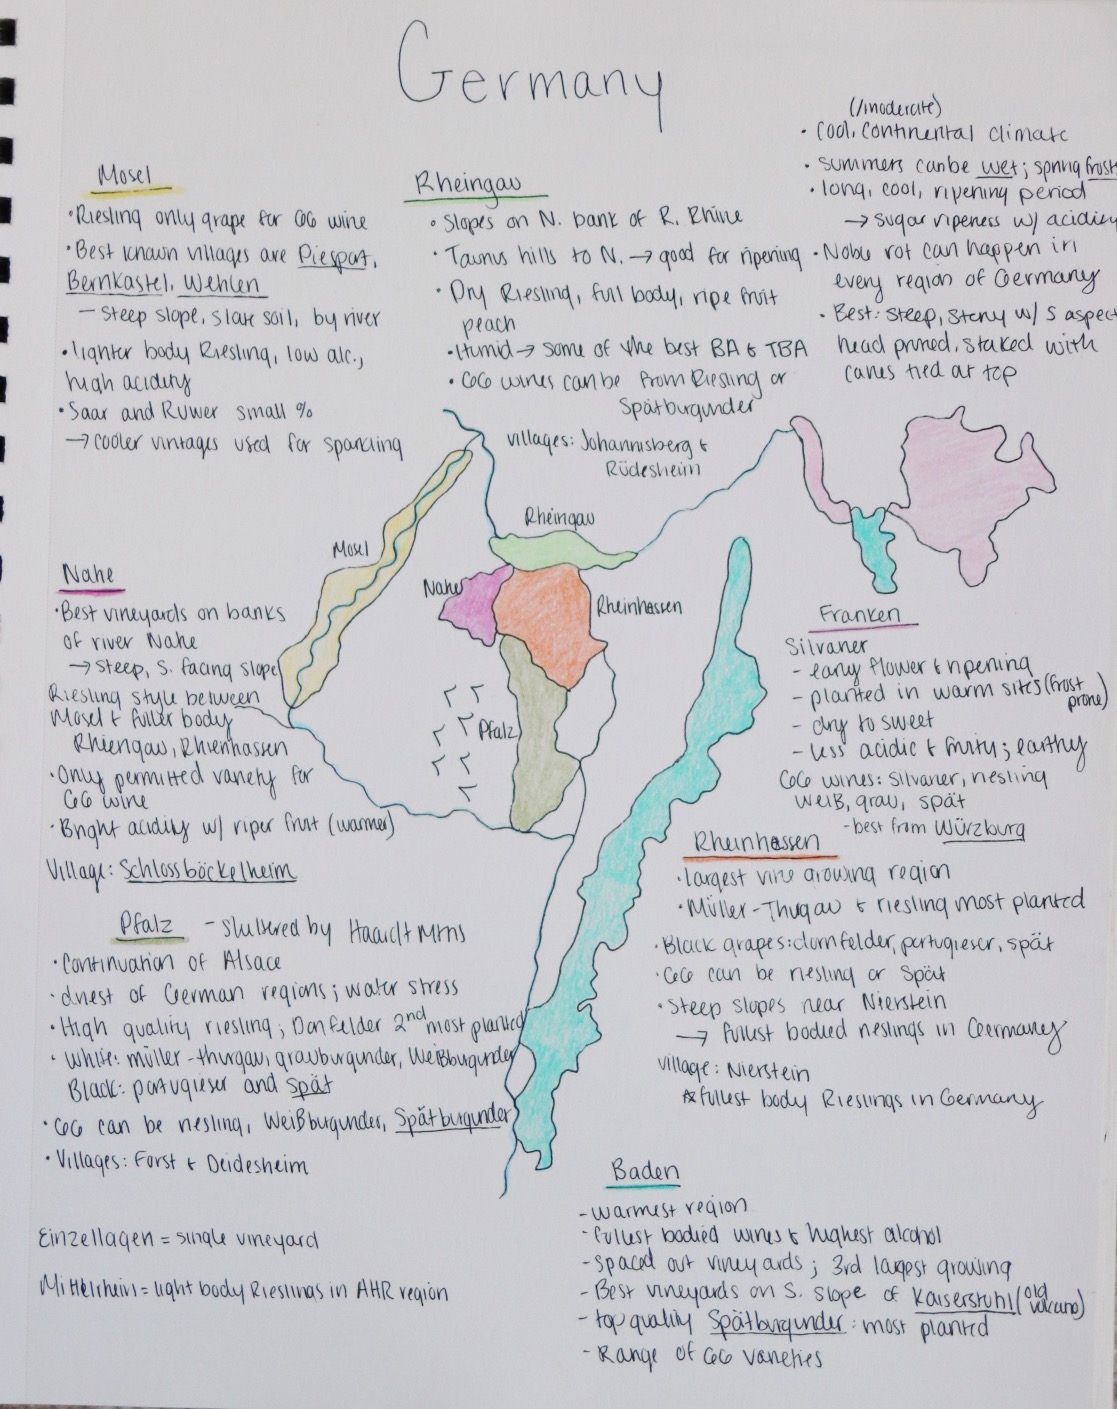 Germany
(/moderate)
• Cool, continental climate
• Summers can be wet; spring frost
• long, cool, ripening period
→ sugar ripeness w/ acidity
• Noble rot can happen in
every region of Germany
• Best: Steep, Stony w/ S aspect
head pruned, staked with
canes tied at top
Mosel
• Riesling only grape for GG wine
• Best known villages are Piesport,
Bernkastel, Wehlen
– Steep slope, slate soil, by river
• lighter body Riesling, low alc.,
high acidity
• Saar and Ruwer small %
→ cooler vintages used for sparkling
Rheingau
• Slopes on N. bank of R. Rhine
• Taunus hills to N. → good for ripening
• Dry Riesling, full body, ripe fruit
peach
• Humid → some of the best BA & TBA
• GG wines can be from Riesling or
Spätburgunder
villages: Johannisberg &
Rüdesheim
Rheingau
Mosel
Nahe
Rheinhassen
Pfalz
Nahe
• Best vineyards on banks
of river Nahe
→ Steep, S. facing slope
Riesling style between
Mosel & fuller body
Rhiengau, Rhienhassen
• Only permitted variety for
GG wine
• Bright acidity w/ riper fruit (warmer)
Village: Schlossböckelheim
Franken
Silvaner
– early flower & ripening
– planted in warm sites (frost
prone)
– dry to sweet
– less acidic & fruity; earthy
GG wines: Silvaner, riesling
Weiß, grau, spät
- best from Würzburg
Rheinhassen
• largest vine growing region
• Müller-Thugau & riesling most planted
• Black grapes: dornfelder, portugieser, spät
• GG can be riesling or Spät
• Steep slopes near Nierstein
→ fullest bodied rieslings in Germany
Village: Nierstein
☆ fullest body Rieslings in Germany
Pfalz – Sheltered by Haardt Mtns
• Continuation of Alsace
• driest of German regions; water stress
• High quality riesling; Donfelder 2nd most planted
• White: müller-thurgau, grauburgunder, Weißburgunder
Black: portugieser and spät
• GG can be riesling, Weißburgunder, Spätburgunder
• Villages: Forst & Deidesheim
Baden
- warmest region
- fullest bodied wines & highest alcohol
- spaced out vineyards; 3rd largest growing
- Best vineyards on S. slope of Kaiserstuhl (old
volcano)
- top quality Spätburgunder: most planted
- Range of GG varieties
Einzellagen = single vineyard
Mittelrhein = light body Rieslings in AHR region